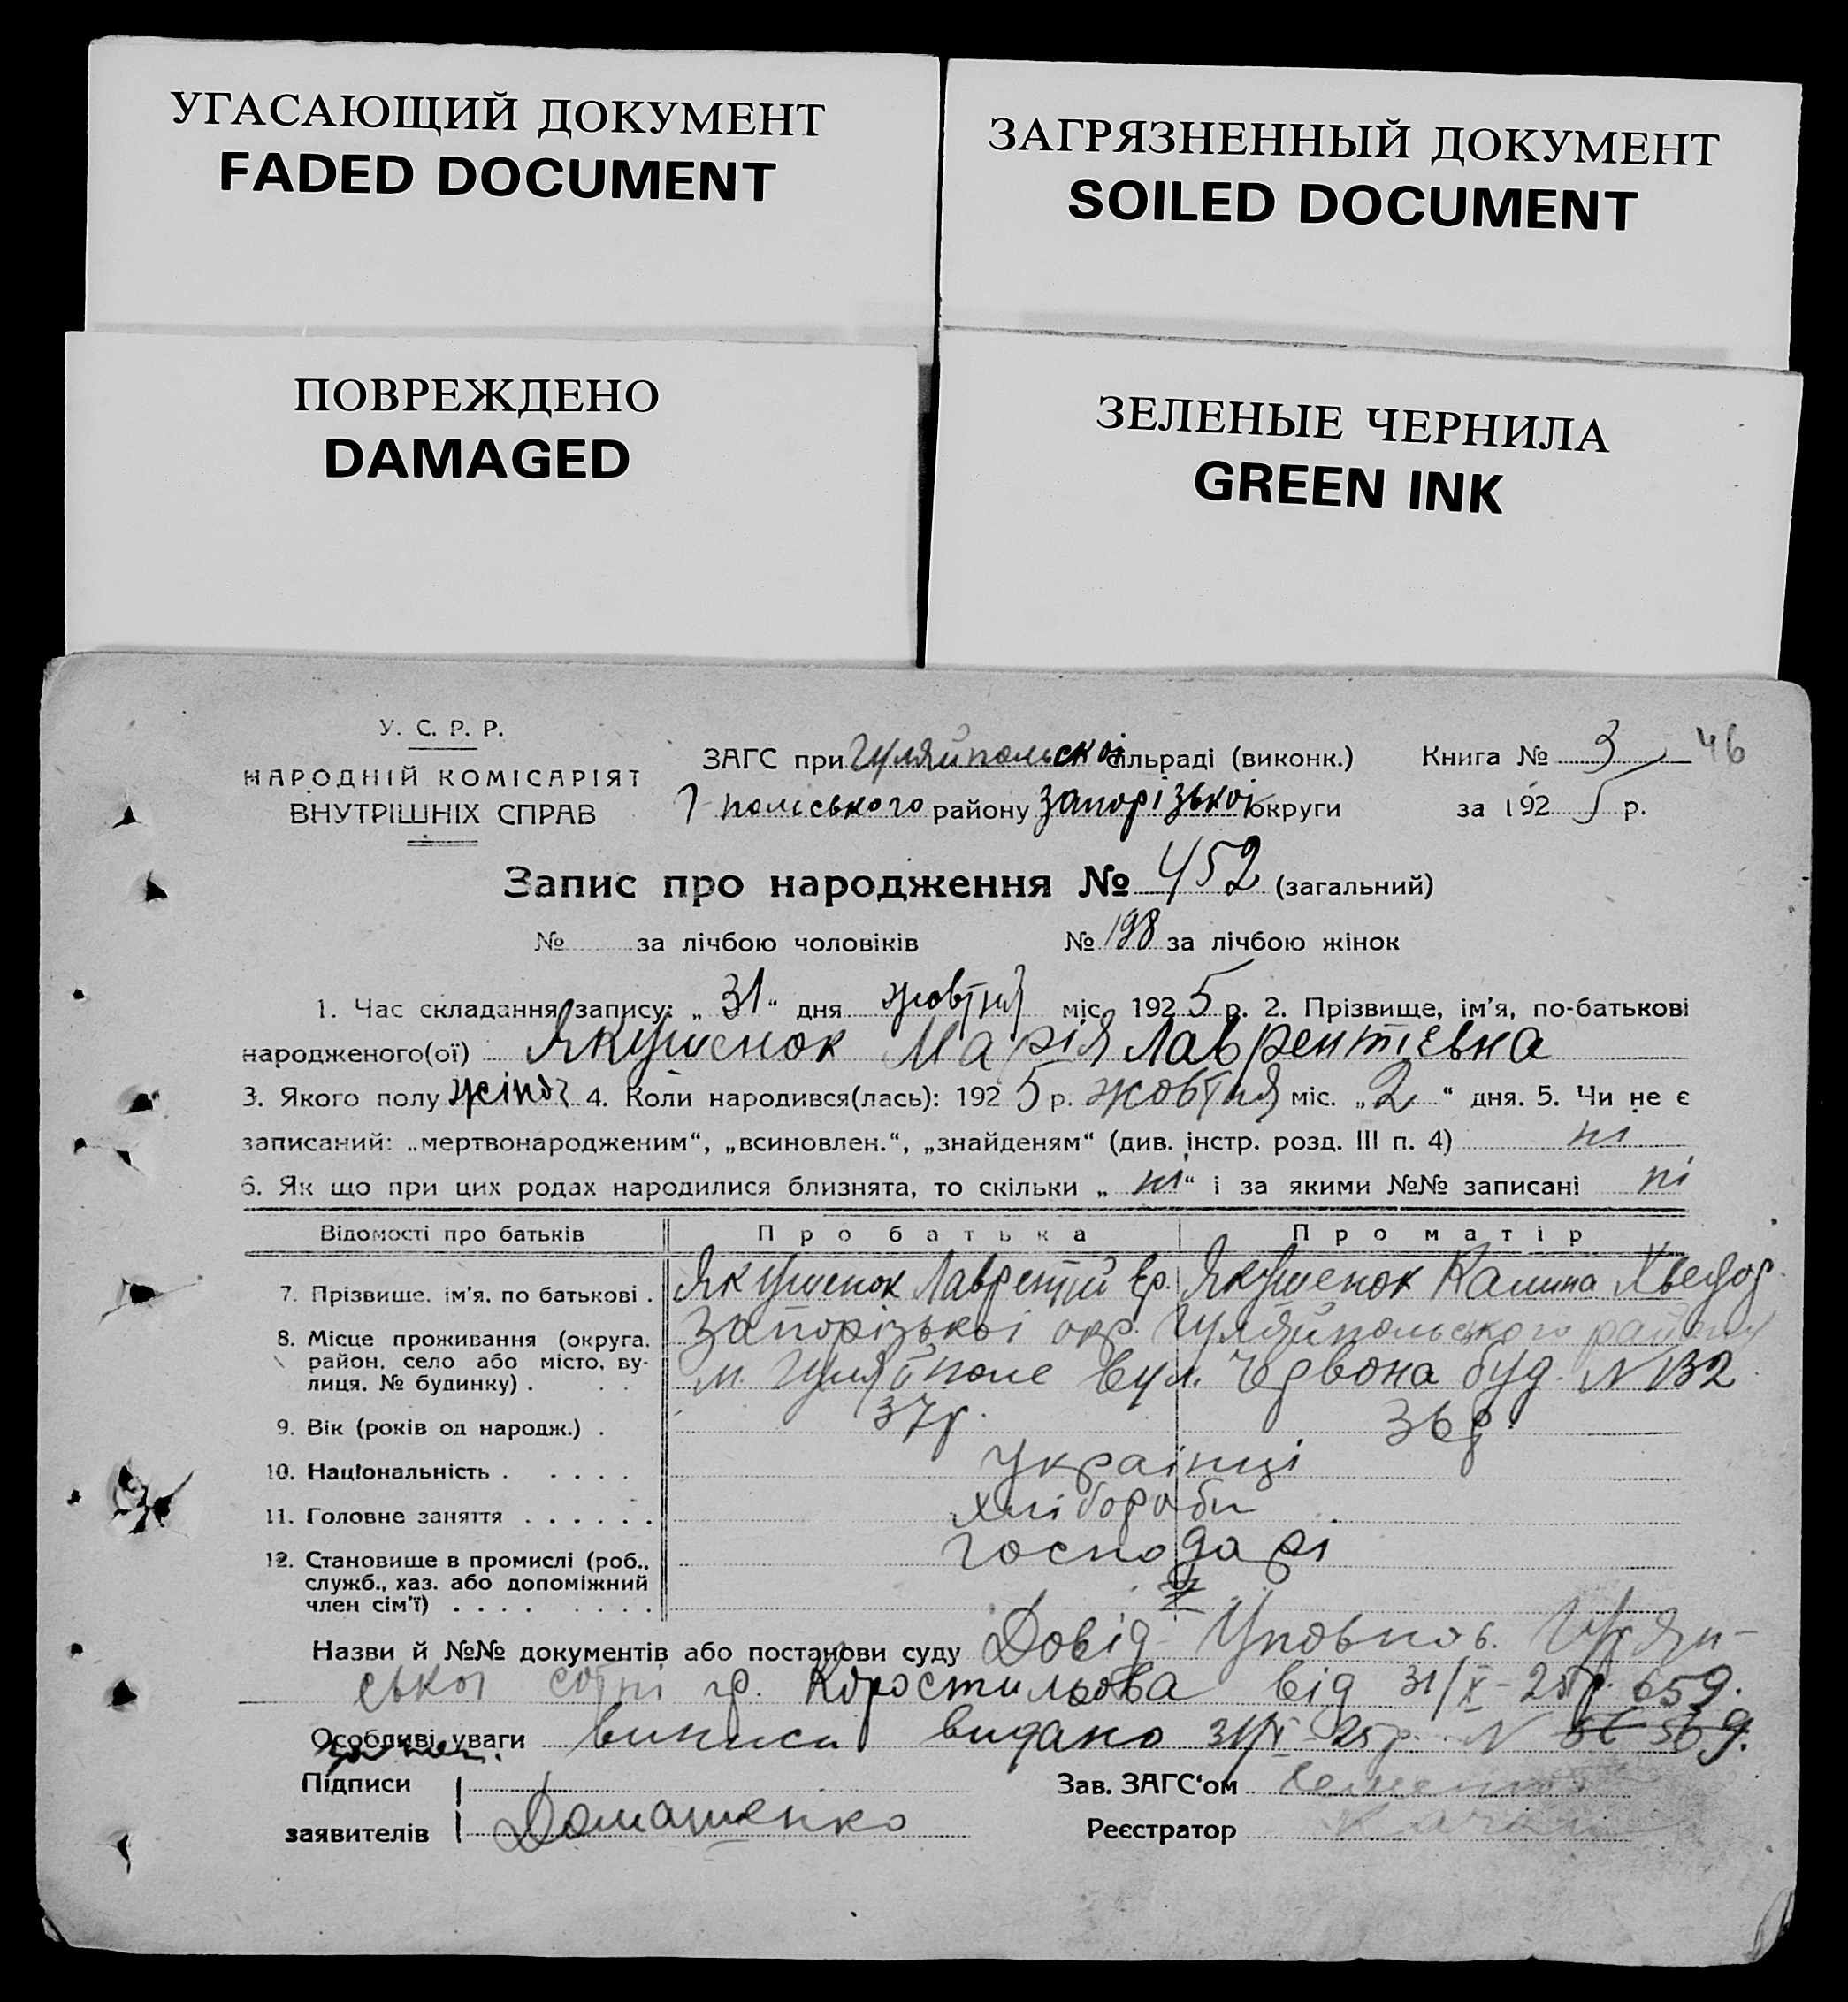 УГАСАЮЩИЙ ДОКУМЕНТ
FADED DOCUMENT
ЗАГРЯЗНЕННЫЙ ДОКУМЕНТ
SOILED DOCUMENT
ПОВРЕЖДЕНО
DAMAGED
ЗЕЛЕНЫЕ ЧЕРНИЛА
GREEN INK
У. С. Р. Р.
НАРОДНІЙ КОМІСАРІЯТ
ВНУТРІШНІХ СПРАВ
ЗАГС при Гуляйпольскоі сільраді (виконк.)
Г-польського району Запорізькоі округи
Книга № 3 46
за 1925 р.
Запис про народження № 452 (загальний)
№ за лічбою чоловіків № 198 за лічбою жінок
1. Час складання запису: „ 31 “ дня жовтня міс. 1925 р. 2. Прізвище, ім'я, по-батькові
народженого(ої) Якушенок Марія Лаврентієвна
3. Якого полу жіноч 4. Коли народився(лась): 1925 р. жовтня міс. „ 2 “ дня. 5. Чи не є
записаний: „мертвонародженим“, „всиновлен.“, „знайденям“ (див. інстр. розд. III п. 4) ні
6. Як що при цих родах народилися близнята, то скільки „ ні “ і за якими №№ записані ні
Відомості про батьків Про батька Про матір
7. Прізвище, ім'я, по батькові . Якушенок Лаврентій Єр. Якушенок Калина Хведор.
8. Місце проживання (округа, район, село або місто, вулиця, № будинку) . . . Запорізькоі окр. Гуляйпольського району
м. Гуляйполе вул. Червона буд. N 132
9. Вік (років од народж.) . 37 р. 36 р.
10. Національність . . . . . українці
11. Головне заняття . . . . . . хлібороби
12. Становище в промислі (роб.,
служб., хаз. або допоміжний
член сім'ї) . . . . . . . . господарі
Назви й №№ документів або постанови суду Довід Уповнов. Гуляй-
ської сотні гр. Коростильова від 31/X-25р. 659.
Особливі уваги виписи видано 31/X-25р. N 569.
Підписи
заявителів Домашенко
Зав. ЗАГС‘ом
Реєстратор